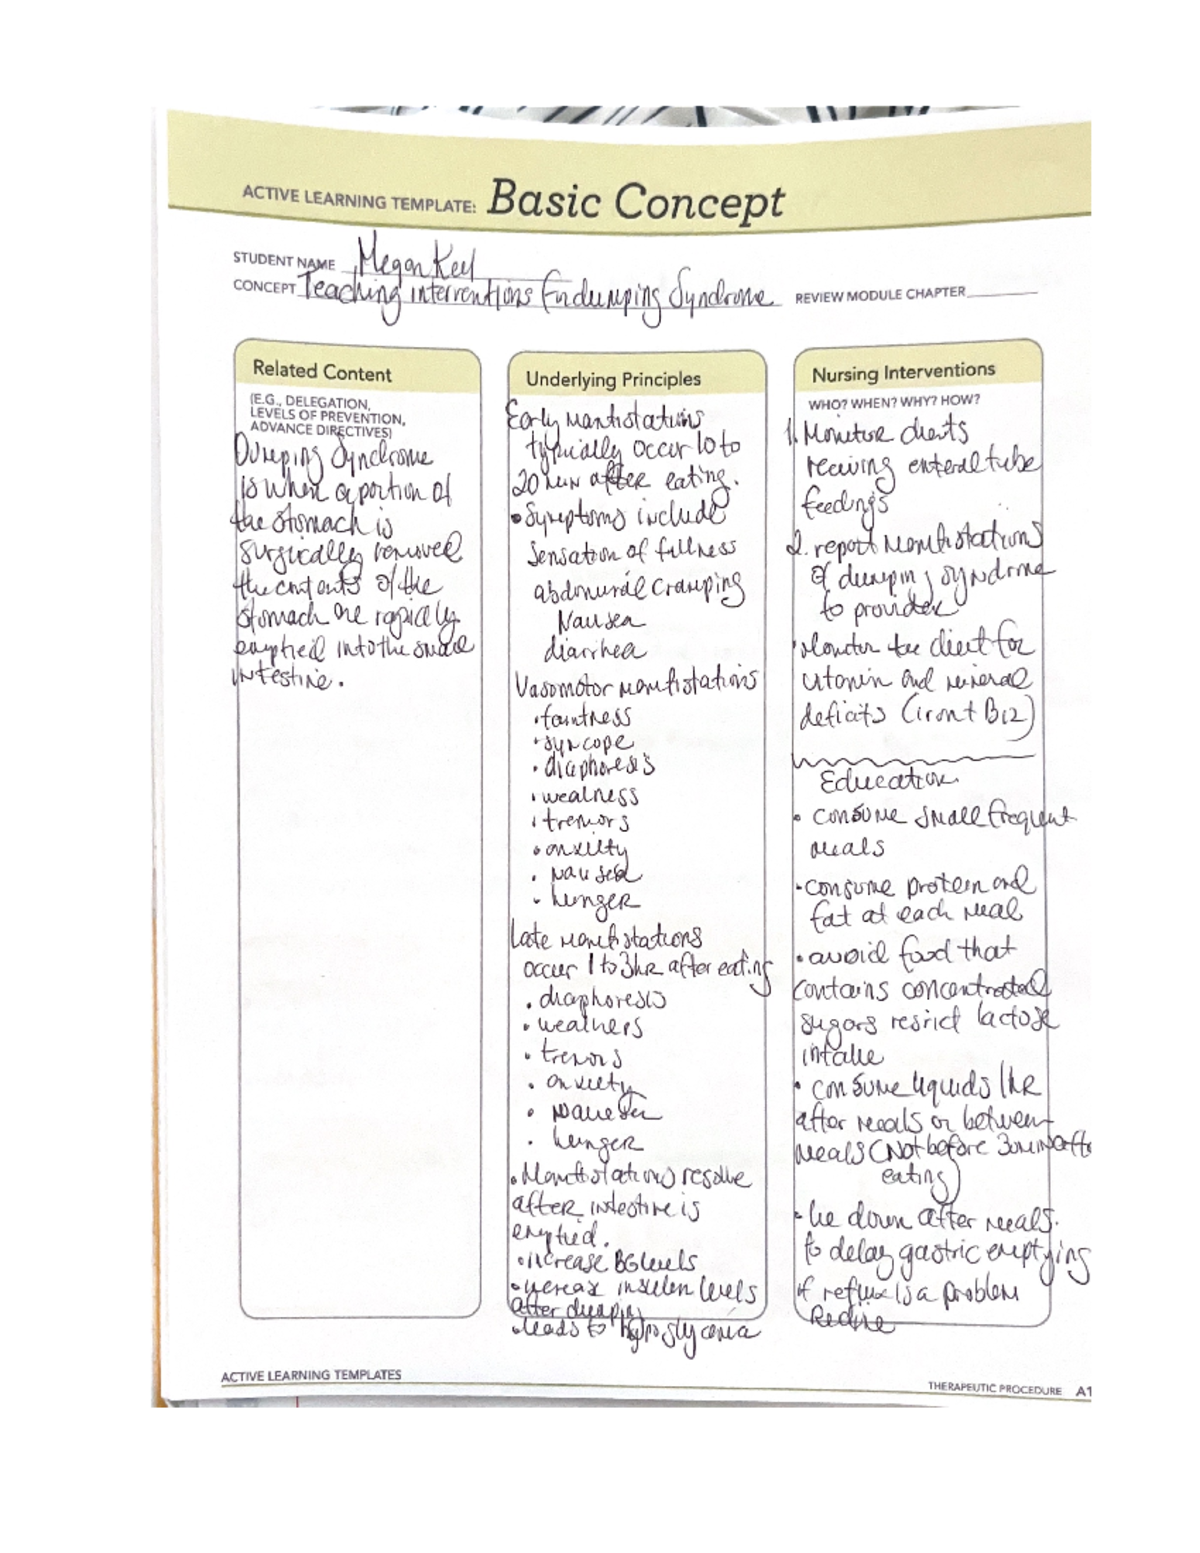 ACTIVE LEARNING TEMPLATE: Basic Concept
STUDENT NAME Megan Keel
CONCEPT Teaching interventions For dumping Syndrome REVIEW MODULE CHAPTER
Related Content
(E.G., DELEGATION,
LEVELS OF PREVENTION,
ADVANCE DIRECTIVES)
Dumping Syndrome
is when a portion of
the stomach is
surgically removed
the contents of the
stomach are rapidly
emptied into the small
intestine.
Underlying Principles
Early manifistations
typically occur 10 to
20 min after eating.
• Symptoms include
Sensation of fullness
abdominal cramping
Nausea
diarrhea
Vasomotor manifistations
• faintness
• syncope
• diaphoresis
• weakness
• tremors
• anxiety
• nausea
• hunger
Late manifistations
occur 1 to 3hr after eating
• diaphoresis
• weakness
• tremors
• anxiety
• nausea
• hunger
• Manifistations resolve
after intestine is
emptied.
• increase BG levels
• increase insulin levels
after dumping
• leads to hypoglycemia
Nursing Interventions
WHO? WHEN? WHY? HOW?
1. Monitor clients
receiving enteral tube
feedings
2. report manifistations
of dumping syndrome
to provider
• Monitor the client for
vitamin and mineral
deficits (iron + B12)
Education
• consume small frequent
meals
• consume protein and
fat at each meal
• avoid food that
contains concentrated
sugars restrict lactose
intake
• consume liquids 1hr
after meals or between
meals (Not before 30min aft
eating)
• lie down after meals.
to delay gastric emptying
if reflux is a problem
Recline
ACTIVE LEARNING TEMPLATES
THERAPEUTIC PROCEDURE A1